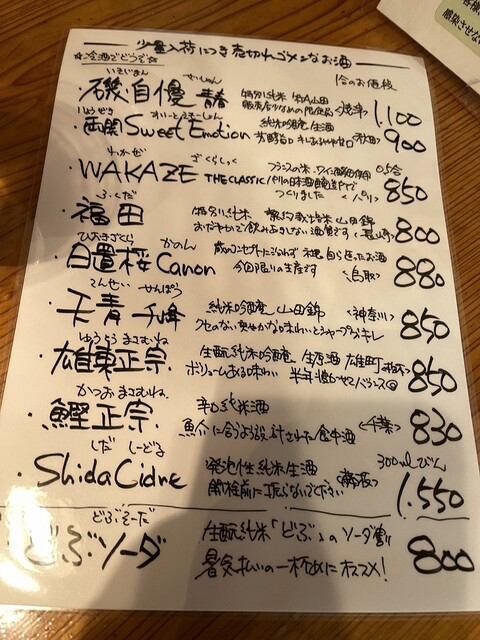 少量入荷につき売切れゴメンなお酒
☆冷酒でどうぞ☆
1合のお値段
いそじまん せいしゅん
・磯自慢 青春 特別純米 山田錦
1,100
りょうぜき すいーとえもーしょん
・両関Sweet Emotion 純米吟醸 生酒
900
わかぜ くらしっく
・WAKAZE THE CLASSIC フランスの米、ワイン酵母
パリの日本酒醸造所で
つくりました <パリ>
850
ふくだ
・福田 特別純米 契約栽培米山田錦
おだやかで飲みあきしない酒質です <長崎>
800
ひおきざくら かのん
・日置桜Canon
今回限りの生産です <鳥取>
880
てんせい せんぽう
・天青 千峰 純米吟醸 山田錦 <神奈川>
クセのない爽やかな味わいとシャープなキレ
850
ゆうとうまさむね
・雄東正宗 生酛純米吟醸 生原酒 雄町
ボリュームある味わい 半年寝かせてバランス◎
850
かつおまさむね
・鰹正宗 辛口純米酒
魚介に合うよう設計された食中酒 <千葉>
830
しだ しーどる
・Shida Cidre 発泡性純米生酒
開栓前に振らないでください
300mlびん
1,550
どぶそーだ
・どぶソーダ 生酛純米「どぶ」のソーダ割
暑気払いの一杯めにオススメ!
800